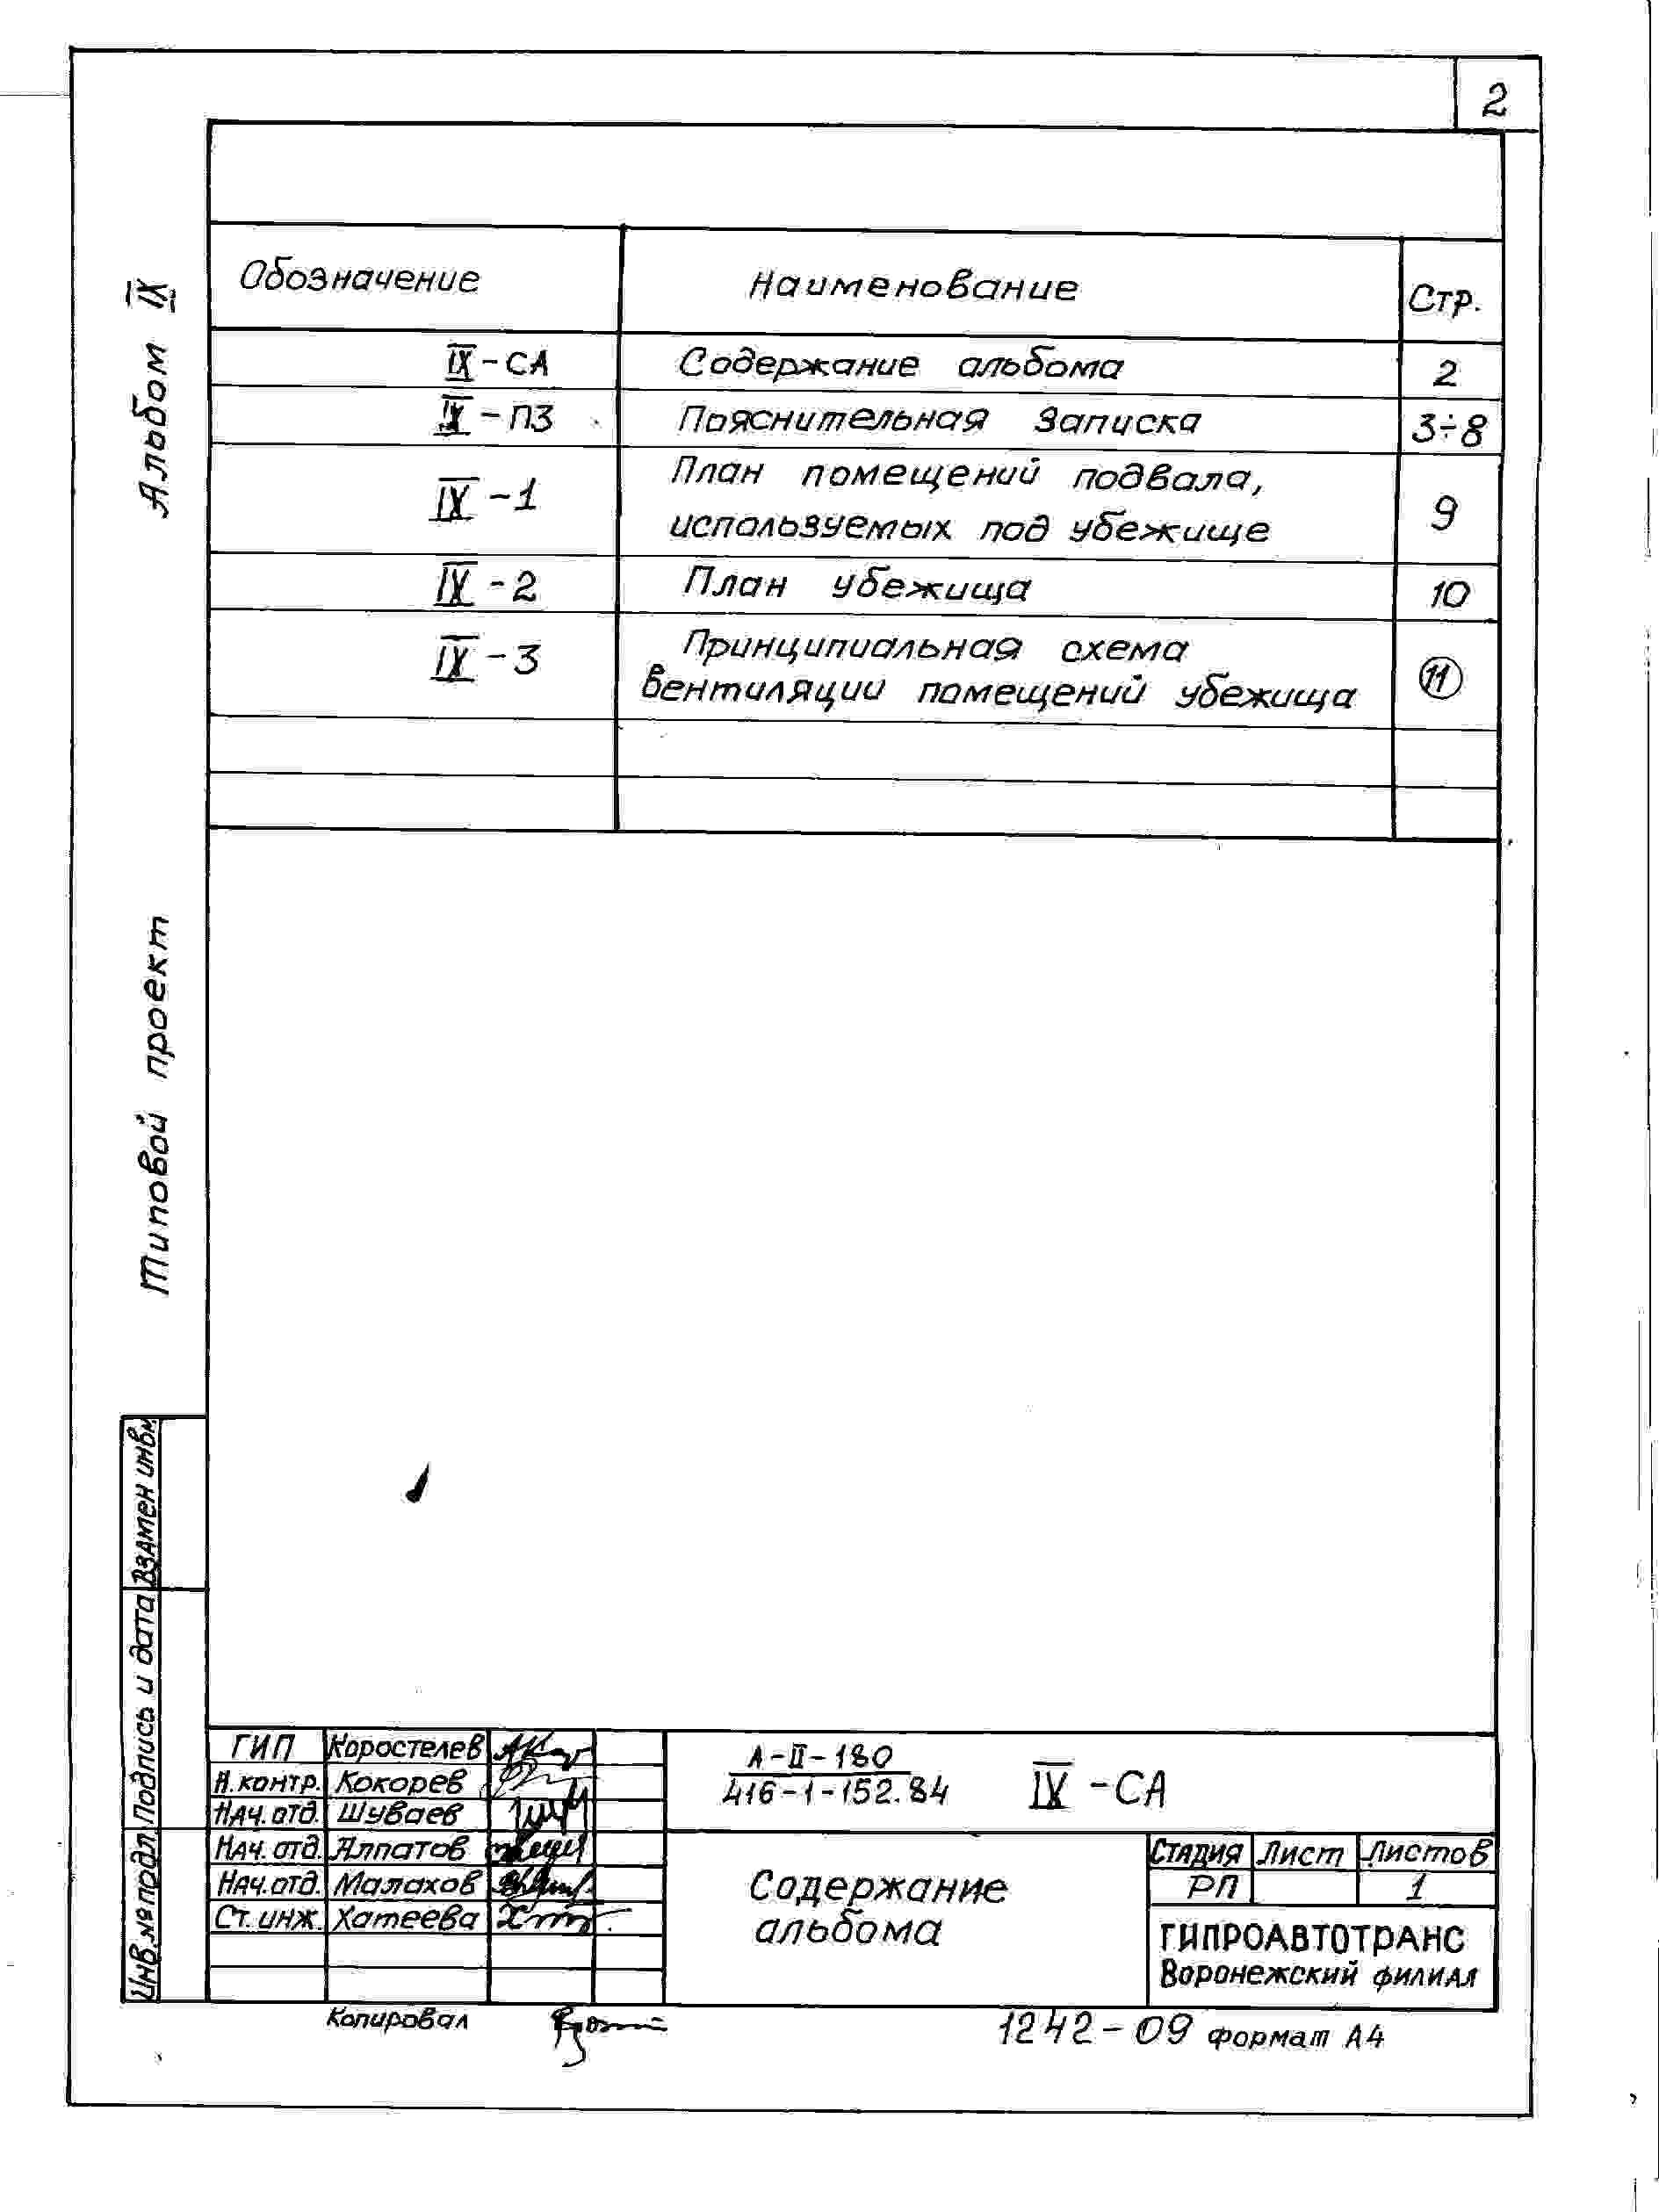 2
Альбом IX
Типовой проект
Обозначение Наименование Стр.
IX-СА Содержание альбома 2
IX-ПЗ Пояснительная записка 3÷8
IX-1 План помещений подвала,
используемых под убежище 9
IX-2 План убежища 10
IX-3 Принципиальная схема
вентиляции помещений убежища 11
Взамен инв.№
Подпись и дата
Инв.№ подл.
ГИП Коростелев
Н.контр. Кокорев
Нач.отд. Шуваев
Нач.отд. Алпатов
Нач.отд. Малахов
Ст.инж. Хатеева
А-II-180
416-1-152.84
IX-СА
Содержание
альбома
Стадия Лист Листов
РП 1
ГИПРОАВТОТРАНС
Воронежский филиал
Копировал
1242-09 формат А4